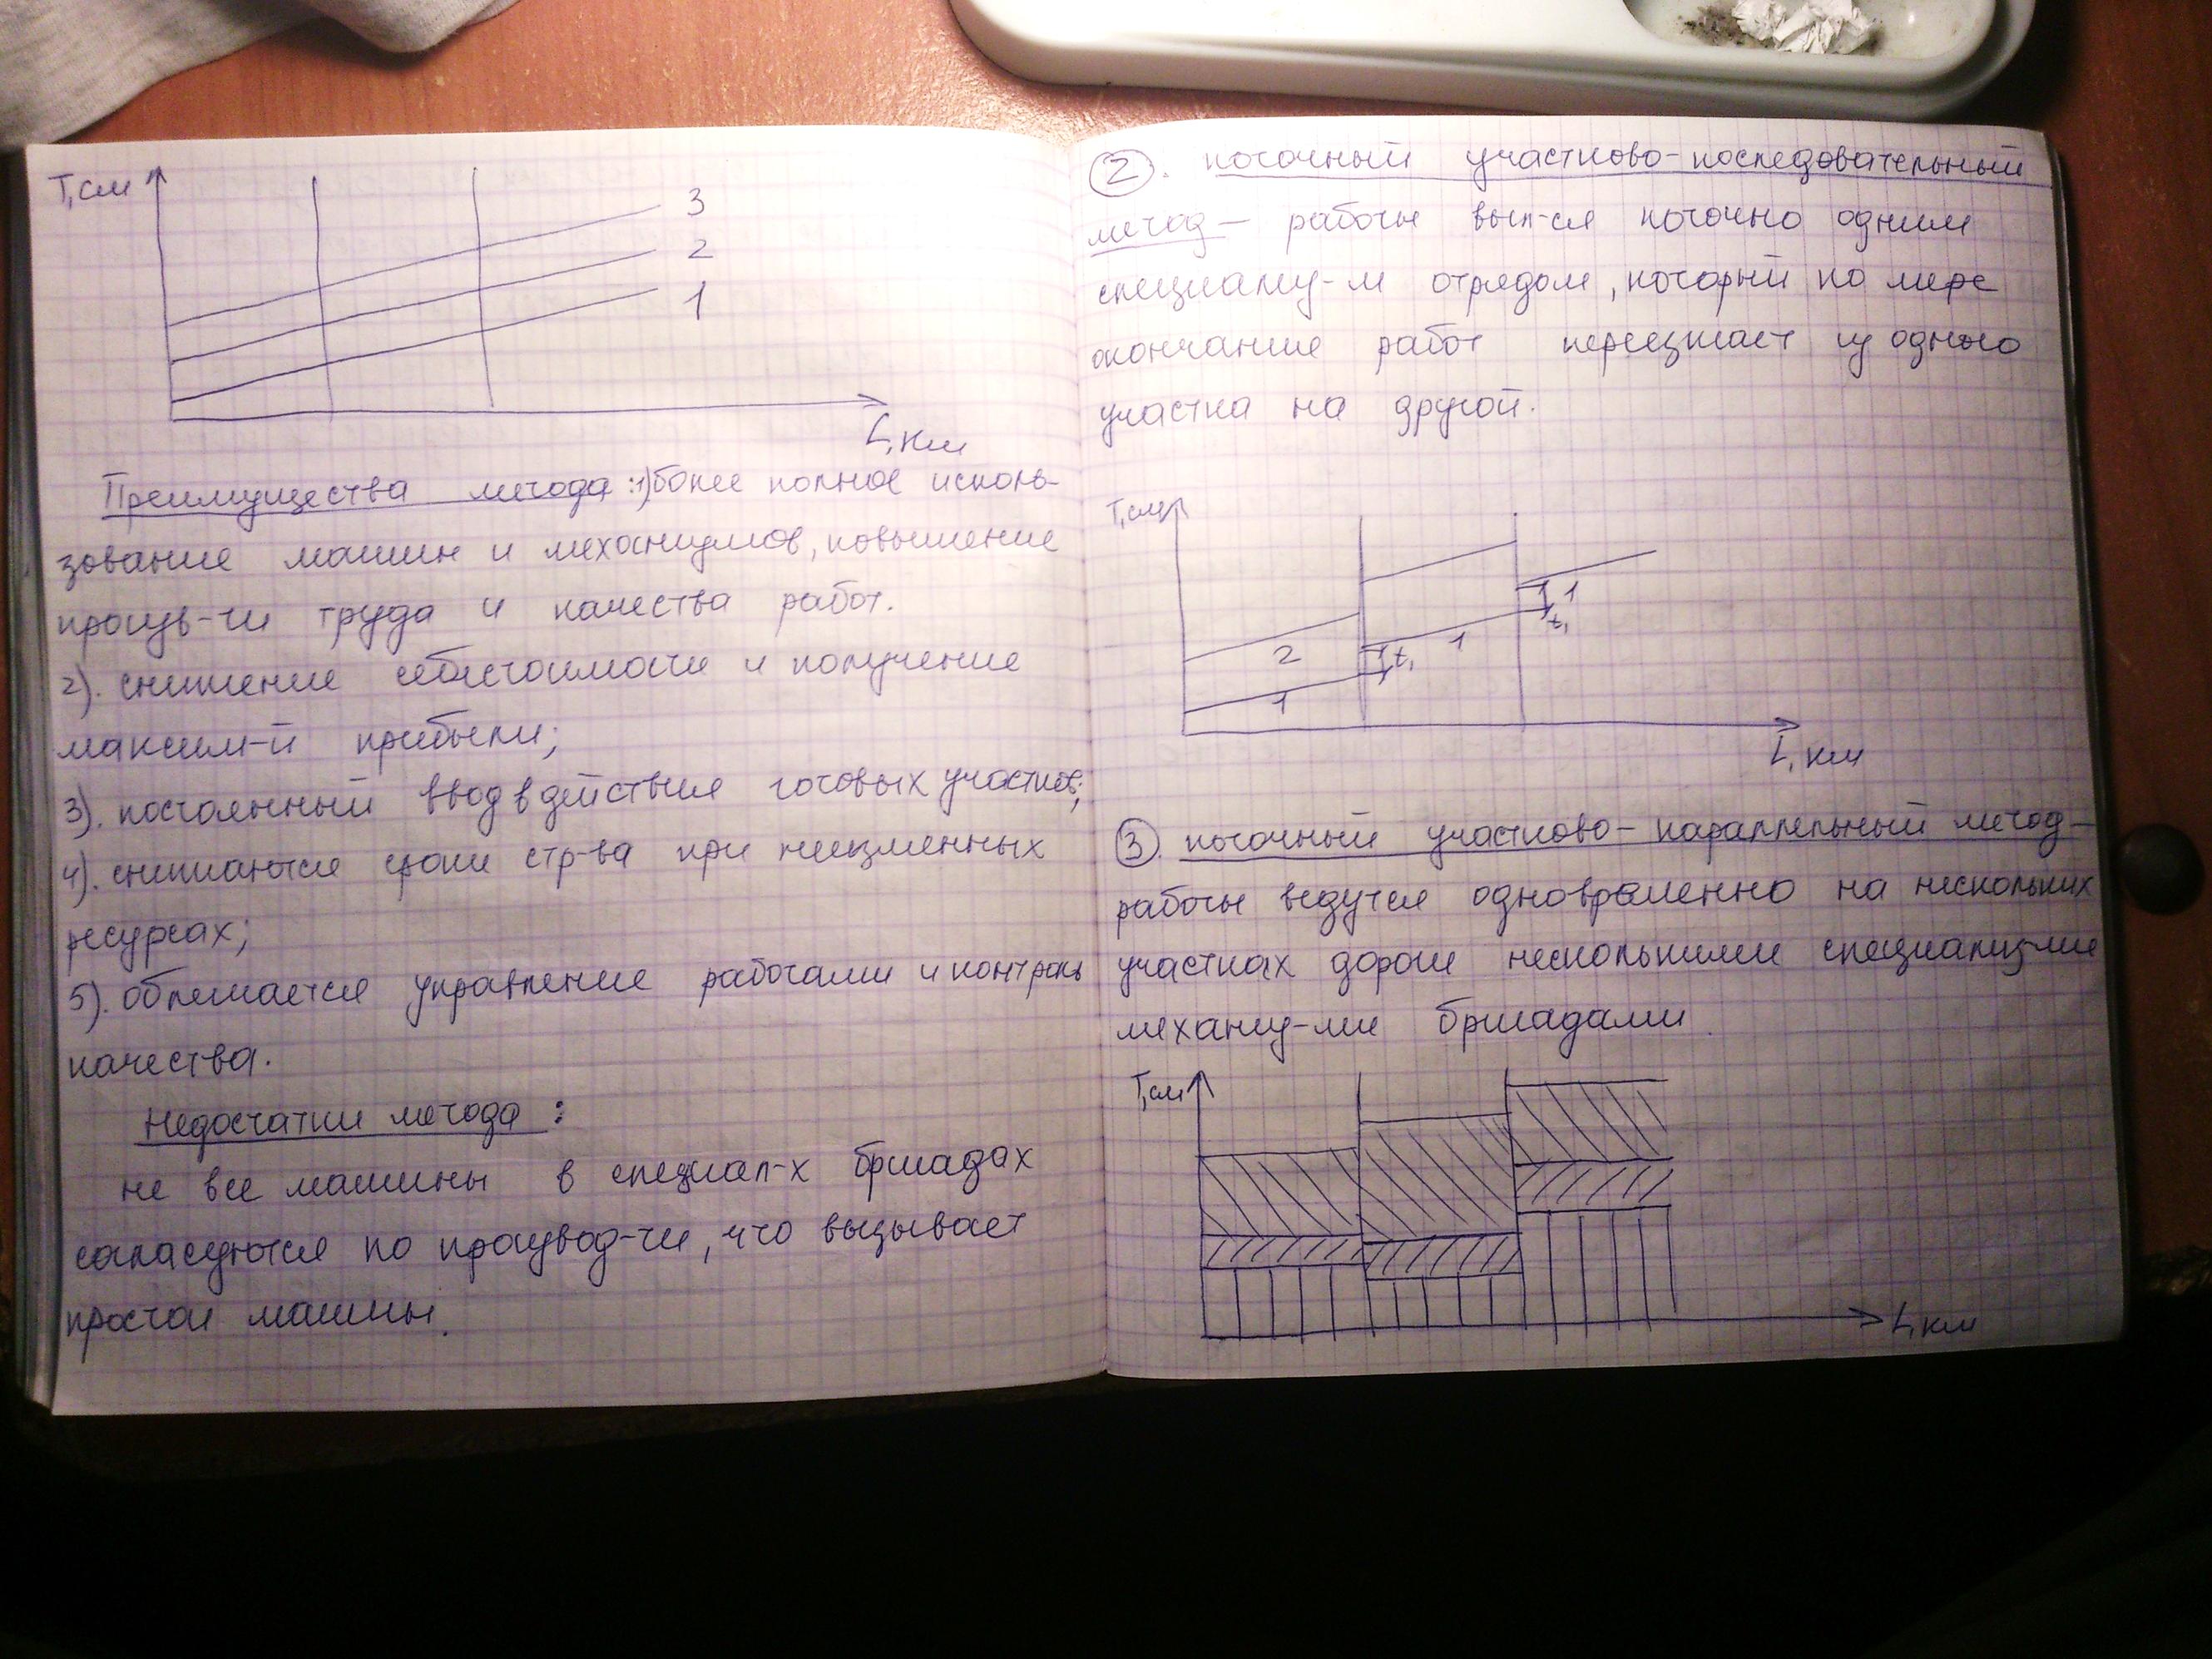 Т,см
3
2
1
L, км
Преимущества метода: 1) более полное исполь-
зование машин и механизмов, повышение
произв-ти труда и качества работ.
2). снижение себестоимости и получение
максим-й прибыли;
3). постоянный ввод в действия готовых участков;
4). снижаются сроки стр-ва при неизменных
ресурсах;
5). облегчается управление работами и контроль
качества.
Недостатки метода:
не все машины в специал-х бригадах
согласуются по производ-ти, что вызывает
простои машины.
2. поточный участково-последовательный
метод - работы вып-ся поточно одним
специализ-м отрядом, который по мере
окончание работ переезжает из одного
участка на другой.
Т,см
2
1
t₁
1
1
t₁
L, км
3. поточный участково-параллельный метод -
работы ведутся одновременно на нескольких
участках дороги несколькими специализ-ми
механиз-ми бригадами.
Т,см
L, км